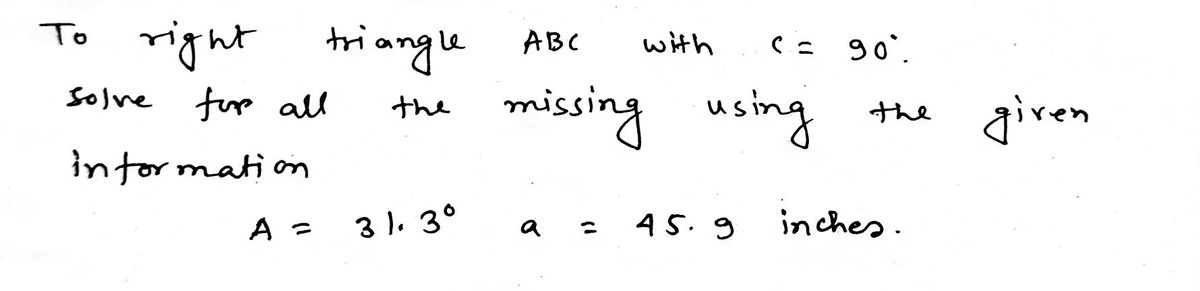 To right triangle ABC with C = 90°.
solve for all the missing using the given
information
A = 31.3° a = 45.9 inches.